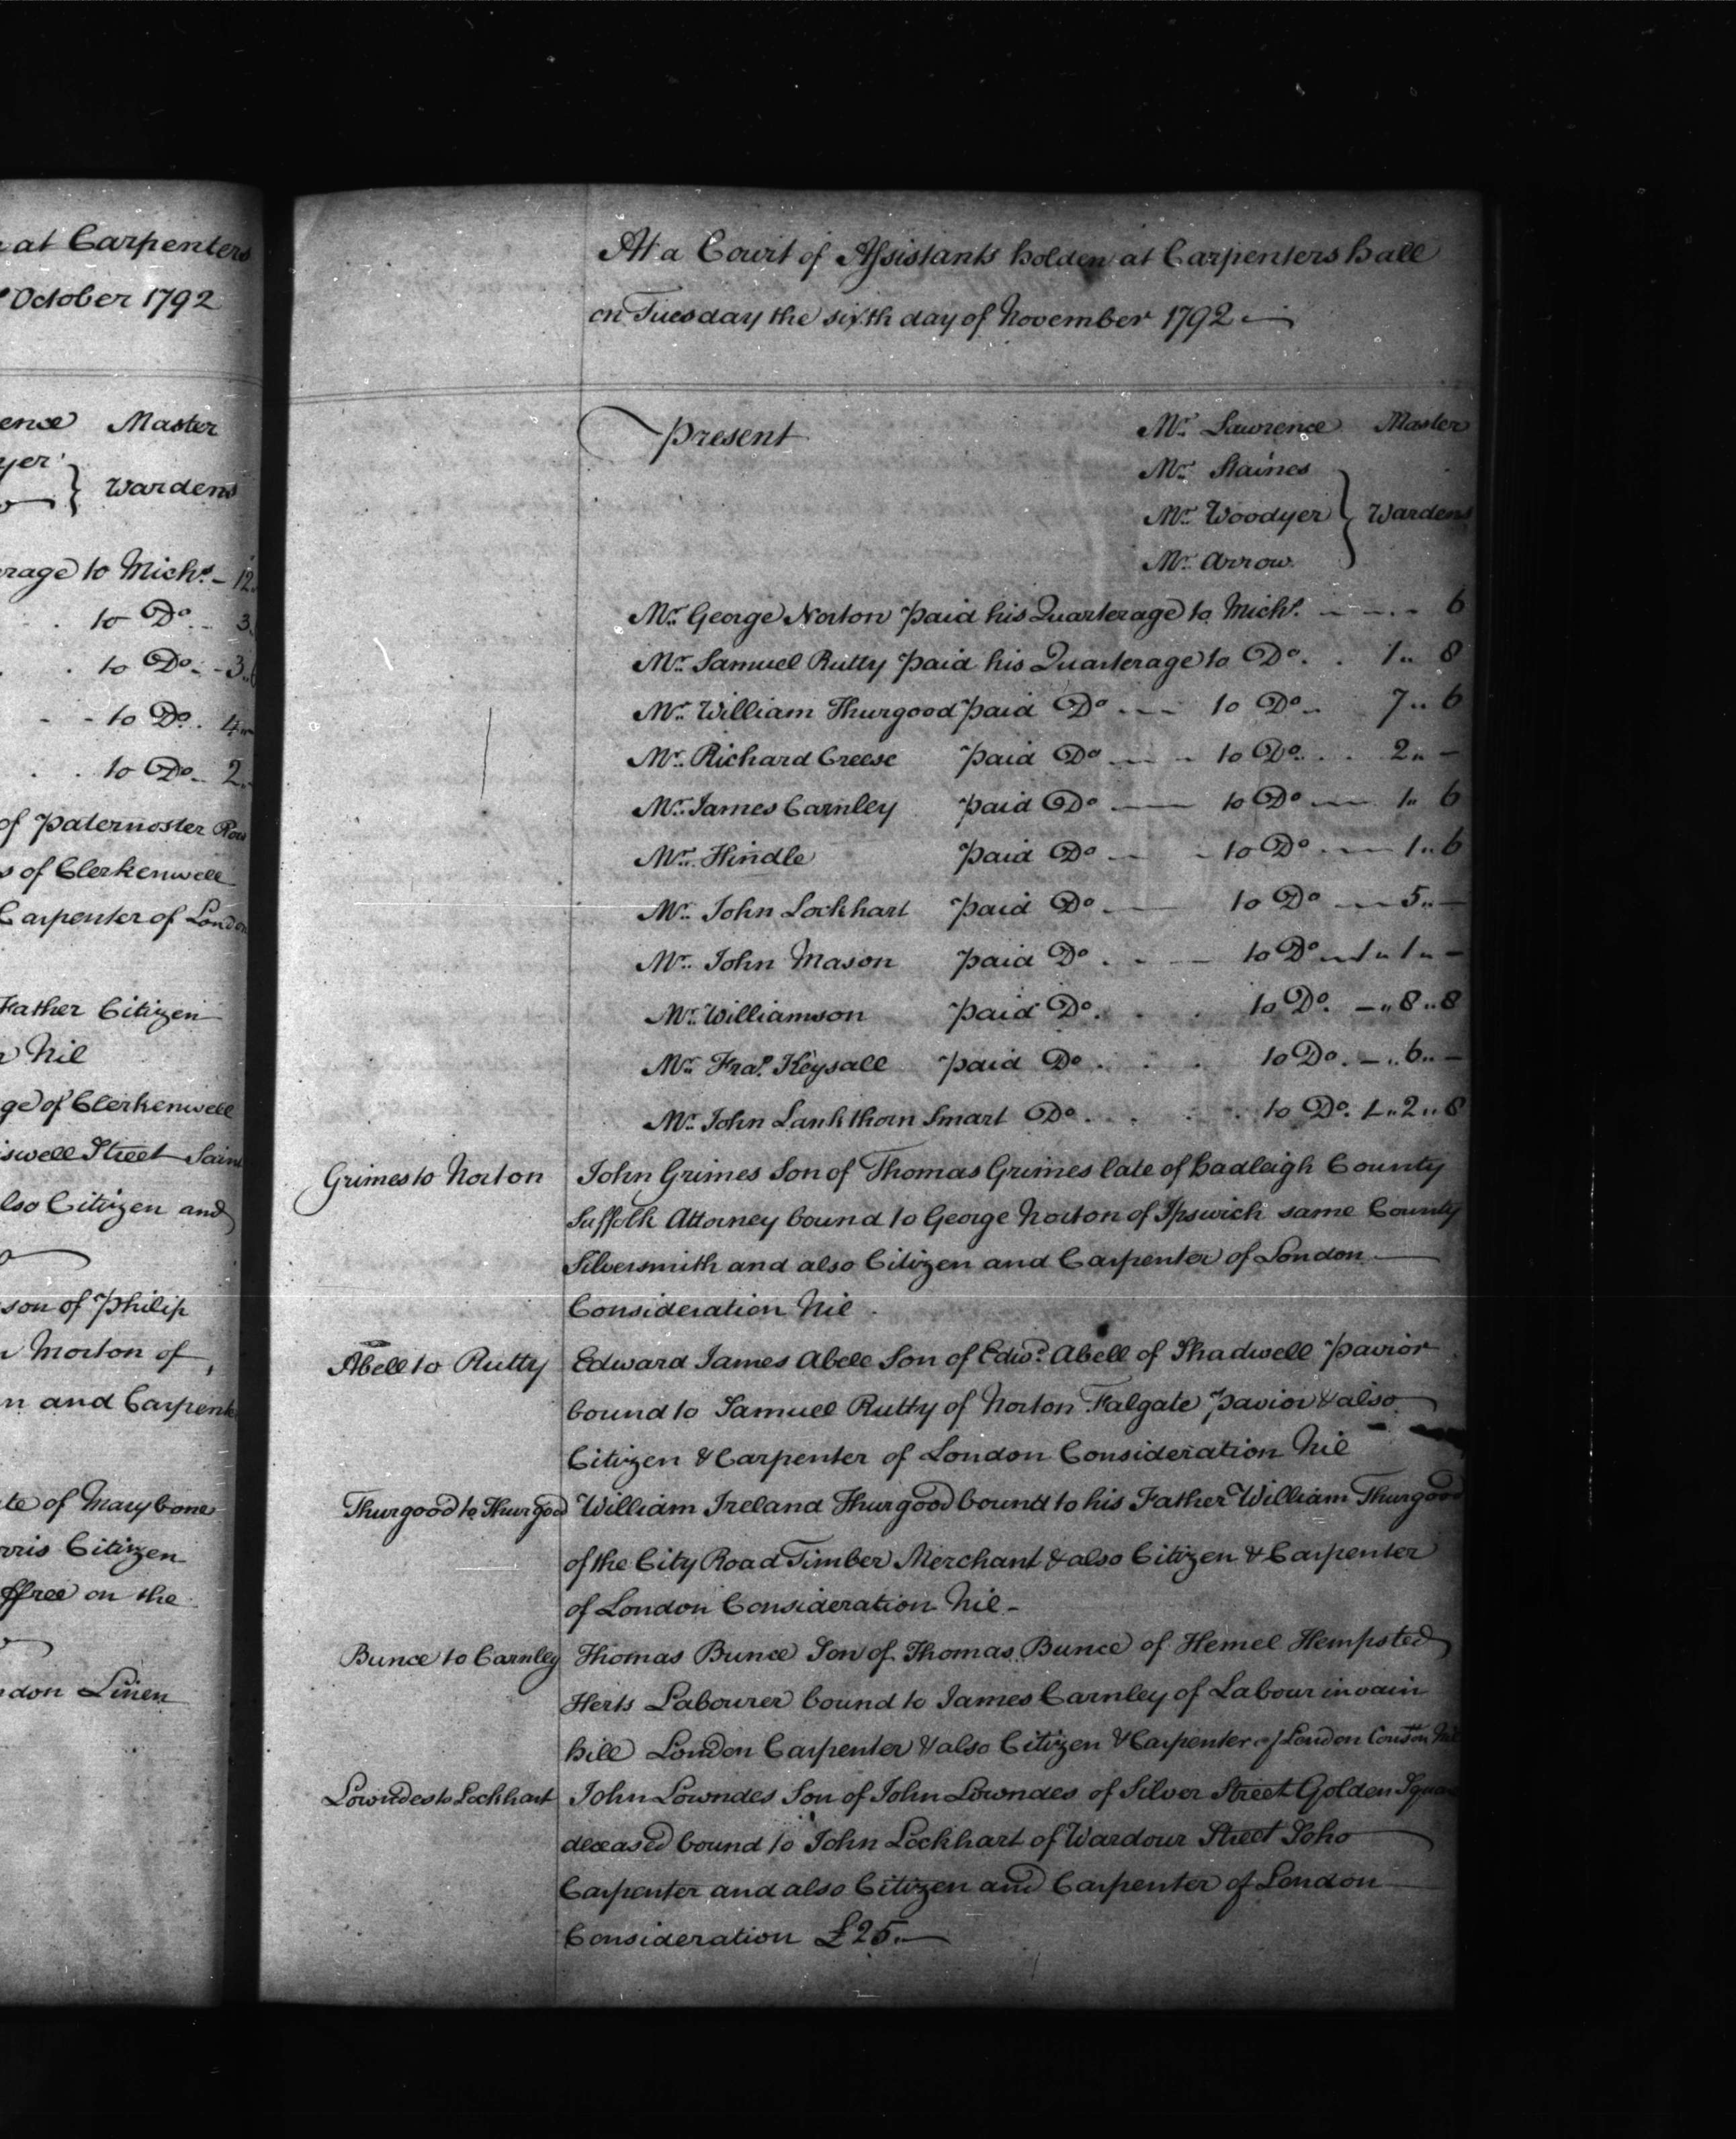 at Carpenters
October 1792
ence Master
yer
Wardens
rage to Michs. - 12
to Do. .. 3
to Do. - 3
- - to Do. 4
to Do. 2
of Paternoster Row
s of Clerkenwell
Carpenter of London
Father Citizen
Nil
ge of Clerkenwell
iswell Street Saint
lso Citizen and
son of Philip
Morton of
n and Carpent
te of Marybone
rris Citizen
ffree on the
ndon Linen
At a Court of Assistants holden at Carpenters hall
on Tuesday the sixth day of November 1792
Present
Mr. Lawrence Master
Mr. Staines
Mr. Woodyer } Wardens
Mr. Arrow
Mr. George Norton Paid his Quarterage to Michs. - - - 6
Mr. Samuel Rutty Paid his Quarterage to Do. . 1 .. 8
Mr. William Thurgood Paid Do. - - to Do. 7 .. 6
Mr. Richard Creese Paid Do. - - to Do. . . 2 .. -
Mr. James Carnley Paid Do - to Do - 1 .. 6
Mr. Hindle Paid Do - - to Do. - 1 .. 6
Mr. John Lockhart Paid Do. - to Do - 5 .. -
Mr. John Mason Paid Do . - - to Do - 1 .. 1 .. -
Mr. Williamson Paid Do. . . to Do. - .. 8 .. 8
Mr. Fras. Keysall Paid Do . . . to Do. - .. 6 .. -
Mr. John Lankthorn Smart Do . . . to Do. 1 .. 2 .. 8
Grimes to Norton
John Grimes Son of Thomas Grimes late of Hadleigh County
Suffolk Attorney bound to George Norton of Ipswich same County
Silversmith and also Citizen and Carpenter of London
Consideration Nil
Abell to Rutty
Edward James Abell Son of Edwd. Abell of Shadwell Pavior
bound to Samuel Rutty of Norton Falgate Pavior & also
Citizen & Carpenter of London Consideration Nil
Thurgood to Thurgood
William Ireland Thurgood bound to his Father William Thurgood
of the City Road Timber Merchant & also Citizen & Carpenter
of London Consideration Nil -
Bunce to Carnley
Thomas Bunce Son of Thomas Bunce of Hemel Hempsted
Herts Labourer bound to James Carnley of Labour in vain
hill London Carpenter & also Citizen & Carpenter of London Conston Nil
Lowndes to Lockhart
John Lowndes Son of John Lowndes of Silver Street Golden Square
deceased bound to John Lockhart of Wardour Street Soho
Carpenter and also Citizen and Carpenter of London
Consideration £25. -